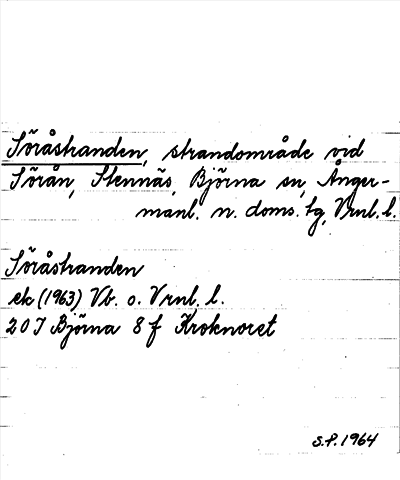 Söråstranden, strandområde vid
Sörån, Stennäs, Björna sn, Ånger-
manl. n. doms. tg, Vrnl. l.
Söråstranden
ek (1963) Vb. o. Vrnl. l.
20 J Björna 8 f Kroknoret
S.P. 1964